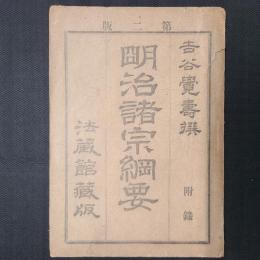 第二版
吉谷覺壽撰
附錄
明治諸宗綱要
法藏館藏版